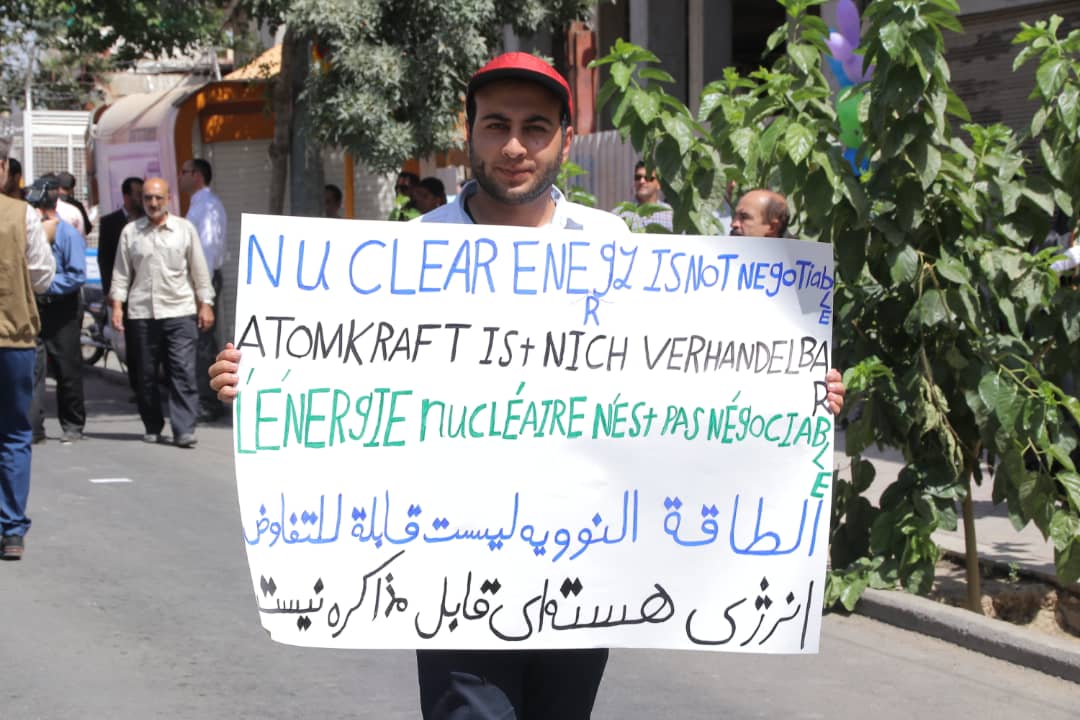 NUCLEAR ENERGY IS NOT NEGOTIABLE
ATOMKRAFT ISt NICH VERHANDELBAR
L'ÉNERGIE nUCLÉAIRE N'ESt PAS NÉGOCIABLE
الطاقة النوويه ليست قابلة للتفاوض
انرژی هسته‌ای قابل مذاکره نیست